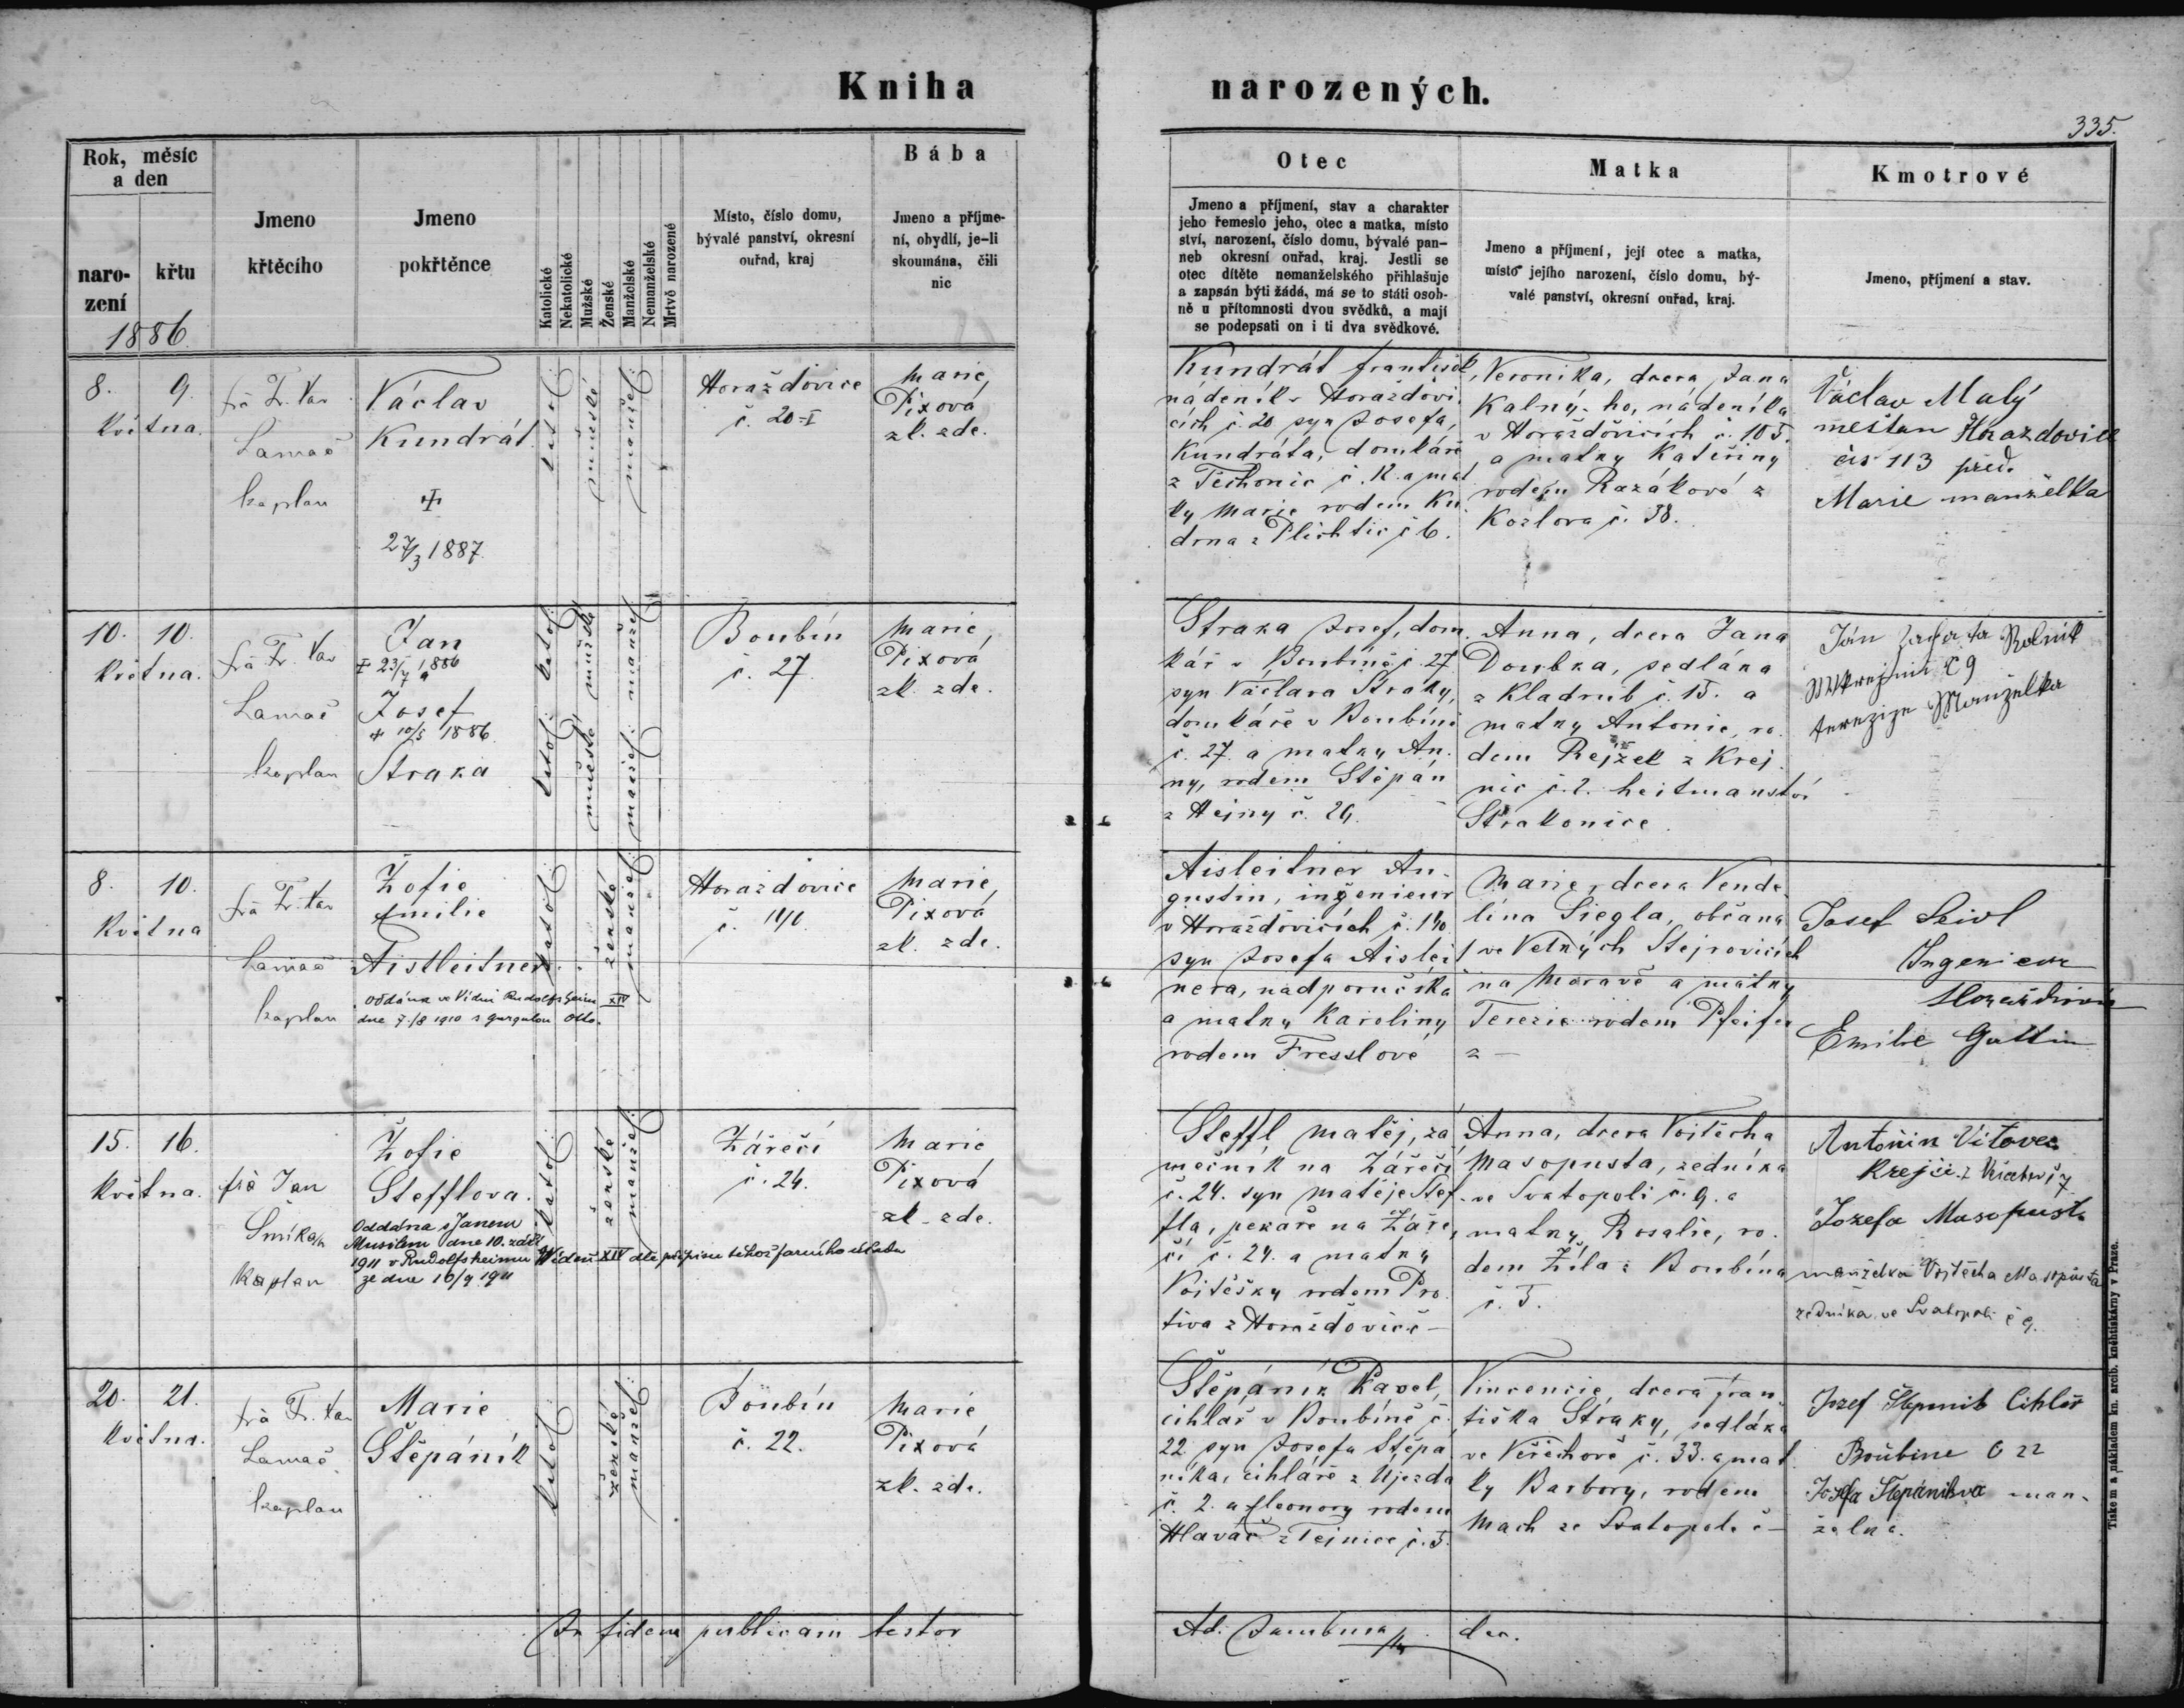 Kniha narozených.
335.
Rok, měsíc
a den
naro-
zení
křtu
1886
Jmeno
křtěcího
Jmeno
pokřtěnce
Katolické
Nekatolické
Mužské
Ženské
Manželské
Nemanželské
Mrtvě narozené
Místo, číslo domu,
bývalé panství, okresní
ouřad, kraj
Bába
Jmeno a příjme-
ní, obydlí, je-li
skoumána, čili
nic
Otec
Jmeno a příjmení, stav a charakter
jeho řemeslo jeho, otec a matka, místo
ství, narození, číslo domu, bývalé pan-
neb okresní ouřad, kraj. Jestli se
otec dítěte nemanželského přihlašuje
a zapsán býti žádá, má se to státi osob-
ně u přítomnosti dvou svědků, a mají
se podepsati on i ti dva svědkové.
Matka
Jmeno a příjmení, její otec a matka,
místo jejího narození, číslo domu, bý-
valé panství, okresní ouřad, kraj.
Kmotrové
Jmeno, příjmení a stav.
8. 9.
Května.
Lamač
kaplan
Václav
Kundrát
27/3 1887
katol:
mužské
manžel:
Horažďovice
č. 20-I
Marie
Pixová
zk. zde.
Kundrát František,
nádeník v Horažďovi-
cích č. 20 syn Josefa
Kundráta, domkáře
z Těchonic č. 12. a mat
ky Marie rodem Ku
drna z Plichtic č 6.
Veronika, dcera Jana
Kalný-ho, nádeníka
v Horažďovicích č. 105.
a matky Kateřiny
rodem Razákové z
Kozlova č. 38.
Václav Malý
meštan Horazdovice
čis 113 před.
Marie manželka
10. 10.
Května.
Lamač
kaplan
Jan
23/7 1886
a
Josef
10/5 1886
Straka
katol: katol:
mužské mužské
manžel: manžel:
Boubín
č. 27
Marie
Pixová
zk. zde.
Straka Josef, dom
kář v Boubíně č. 27
syn Václava Straky,
domkáře v Boubíně
č. 27. a matky An-
ny, rodem Štěpán
z Hejny č. 24.
Anna, dcera Jana
Doubka, sedláka
z Kladrub č. 15. a
matky Antonie, ro-
dem Rejžek z Krej
nic č. 2. heitmanství
Strakonice
Ján Rolník
č 9
terezije Manželka
8. 10.
Května
Lamač
kaplan
Žofie
Emilie
Aistleitner
oddána ve Vídni Rudolfsheim XIV
dne 7./8 1910 s Otto.
katol:
ženské
manžel:
Horažďovice
č. 140.
Marie
Pixová
zk. zde.
Aisleitner Au-
gustin, inženieur
v Horažďovicích č. 140
syn Josefa Aislei
nera, nadporučíka
a matky Karoliny
rodem Fresslové
Marie, dcera Vende
lína Siegla, občana
ve Velkých Stejrovicích
na Moravě a matky
Terezie rodem Pfeifer
z —
Josef
Ingenieur
Emilie Gattin
15. 16.
Května.
Jan
Šmíka
Kaplan
Žofie
Stefflova.
Oddána s Janem
Musilem dne 10. září
1911 v Rudolfsheimu Vídeň XIV dle přípisu téhož farního úřadu
ze dne 10/9 1911
katol:
ženské
manžel:
Zářečí
č. 24.
Marie
Pixová
zk. zde.
Steffl Matěj, zá
mečník na Zářečí
č. 24. syn Matěje Stef-
fla, pekaře na Záře
čí č. 24. a matky
Voitěšky rodem Pro
tiva z Horažďovic č —
Anna, dcera Vojtěcha
Masopusta, zedníka
ve Svatopoli č. 9. a
matky Rosalie, ro-
dem Žíla z Boubína
č. 5.
Antonin Vitovec
krejčí z
Jozefa Masopust
manželka Vojtěcha Masopusta
zedníka ve Svatopoli č 9.
20. 21.
Května.
Lamač
kaplan
Marie
Štěpáník
katol:
ženské
manžel:
Boubín
č. 22.
Marie
Pixová
zk. zde.
Štěpáník Pavel,
cihlář v Boubíně č.
22 syn Josefa Štěpá
níka, cihláře z Újezda
č. 2. a Eleonory rodem
Hlaváč z Tejnice č. 5.
Vincencie, dcera Fran
tiška Straky, sedláka
ve Veřechově č. 33. a mat
ky Barbory, rodem
Mach ze Svatopole č —
Jozef Cihlář
Boubine 22
Josefa Štěpánikva man-
želka.
In fidem publicam testor
Ad. Jambura
dec.
Tiskem a nákladem kn. arcib. kněhtiskárny v Praze.